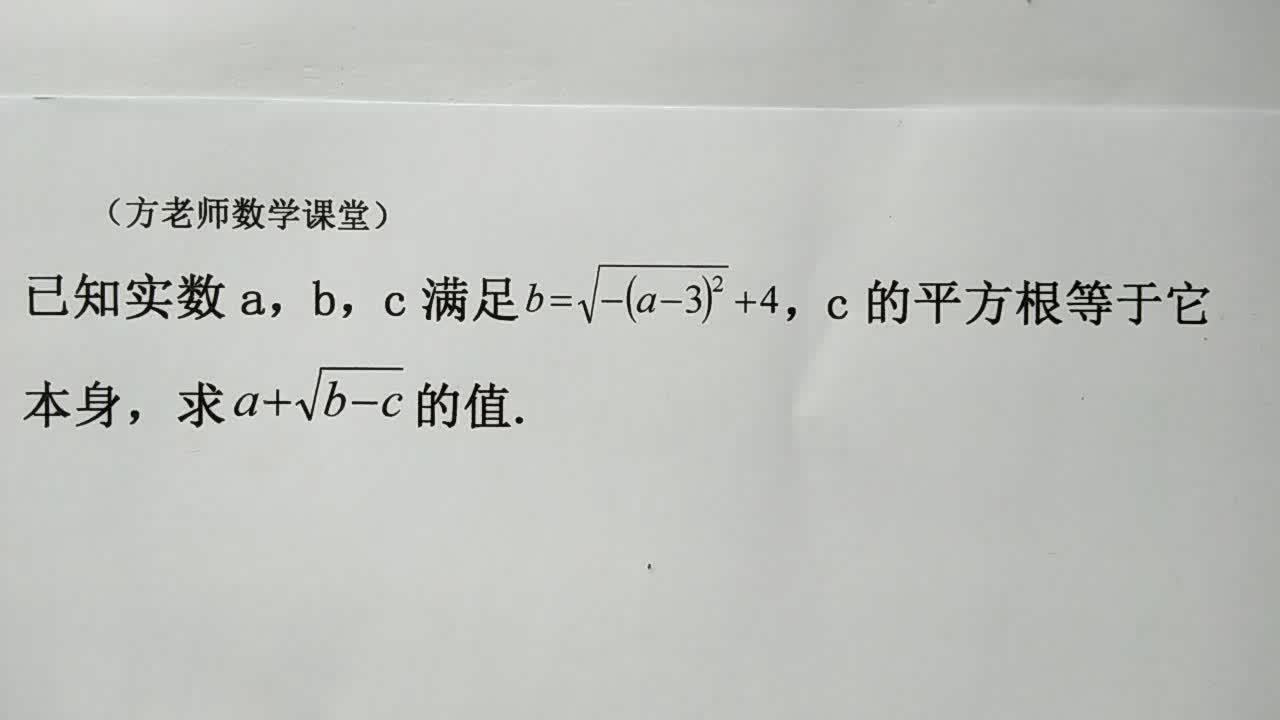 （方老师数学课堂）
已知实数 a，b，c 满足 b=√(-(a-3)²)+4，c 的平方根等于它
本身，求 a+√(b-c) 的值.